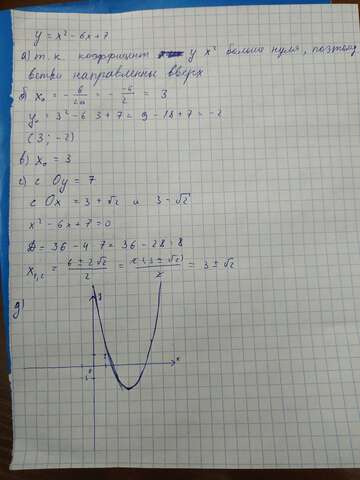 y = x² - 6x + 7
а) т.к. коэффициент у x² больше нуля, поэтому
ветви направленны вверх
б) x₀ = - b/2a = - -6/2 = 3
y₀ = 3² - 6·3 + 7 = 9 - 18 + 7 = -2
(3; -2)
в) x₀ = 3
с) с Oy = 7
с Ox = 3 + √2 и 3 - √2
x² - 6x + 7 = 0
D = 36 - 4·7 = 36 - 28 = 8
x₁,₂ = 6 ± 2√2 / 2 = 2(3 ± √2) / 2 = 3 ± √2
д)
y
x